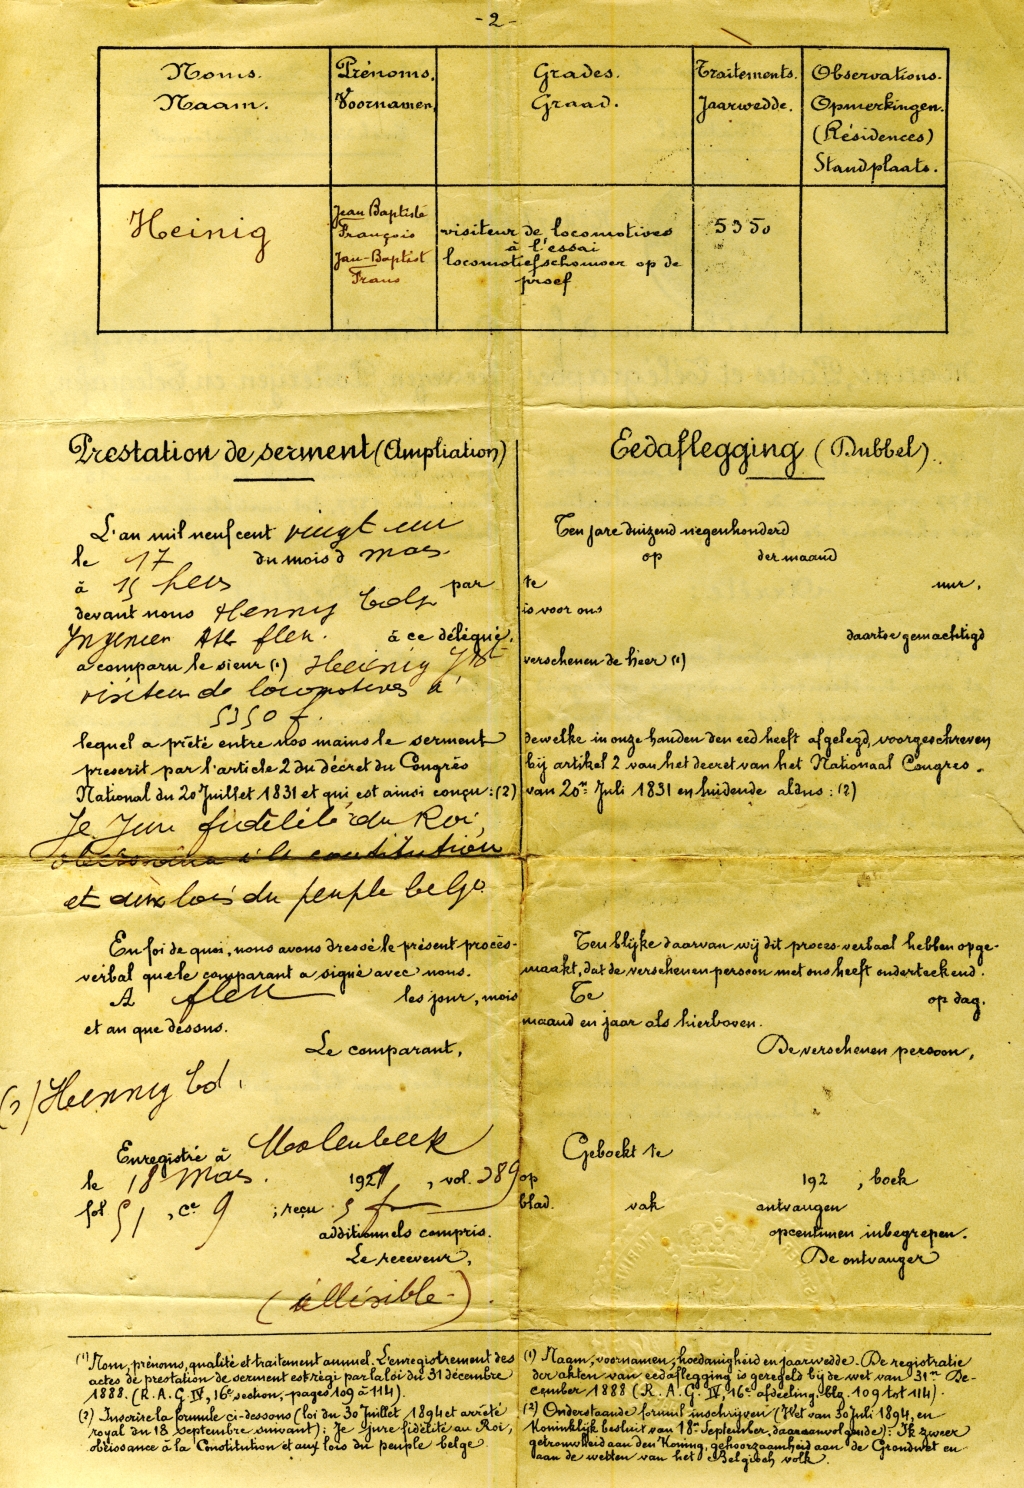 - 2 -
Noms. Prénoms. Grades. Traitements. Observations.
Naam. Voornamen. Graad. Jaarwedde. Opmerkingen.
(Résidences)
Standplaats.
Heinig
Jean Baptiste
François
Jan-Baptist
Frans
visiteur de locomotives
à l'essai
locomotiefschouwer op de
proef
5350
Prestation de serment (Ampliation)
L'an mil neuf cent vingt un
le 17 du mois d mars.
à 15 heurs par
devant nous Hennig
Ingenieur fleu. à ce délégué.
a comparu le sieur (1) Heinig JBt
visiteur de locomotives à
5350 f.
lequel a prêté entre nos mains le serment
prescrit par l'article 2 du décret du Congrès
National du 20 Juillet 1831 et qui est ainsi conçu : (2)
Je Jure fidélité du Roi,
obeissance à la constitution
et aux lois du peuple belge.
En foi de quoi, nous avons dressé le présent procès-
verbal que le comparant a signé avec nous.
A fleu les jour, mois
et an que dessus.
Le comparant,
Hennig
Enregistré à Molenbeek
le 18 Mars. 1921, vol. 289
fol 51, ce 9 ; reçu 5 f
additionnels compris.
Le receveur,
(illisible-).
Eedaflegging (Dubbel).
Ten jare duizend negenhonderd
op der maand
te uur,
is voor ons
daartoe gemachtigd
verschenen de heer (1)
dewelke in onze handen den eed heeft afgelegd, voorgeschreven
bij artikel 2 van het decreet van het Nationaal Congres.
van 20n Juli 1831 en luidende aldus : (2)
Ten blijke daarvan wij dit proces-verbaal hebben opge-
maakt, dat de verschenen persoon met ons heeft onderteekend.
Te op dag.
maand en jaar als hierboven.
De verschenen persoon,
Geboekt te
op 192 , boek
blad. vak ontvangen
opcentimen inbegrepen.
De ontvanger
(1) Nom, prénoms, qualité et traitement annuel. L'enregistrement des
actes de prestation de serment est régi par la loi du 31 décembre
1888. (R. A. G IV, 16e section, - pages 109 à 114).
(2) Inscrire la formule ci-dessous (loi du 30 Juillet 1894 et arrêté
royal du 18 septembre suivant) : Je jure fidélité au Roi,
obéissance à la Constitution et aux lois du peuple belge.
(1) Naam, voornamen, hoedanigheid en jaarwedde. De registratie
der akten van eedaflegging is geregeld bij de wet van 31n De-
cember 1888 (R. A. G. IV, 16e afdeeling. blz. 109 tot 114).
(2) Onderstaande formul inschrijven (Wet van 30 Juli 1894, en
Koninklijk besluit van 18n September, daaraanvolgende) : Ik zweer
getrouwheid aan den Koning, gehoorzaamheid aan de Grondwet en
aan de wetten van het Belgisch volk.